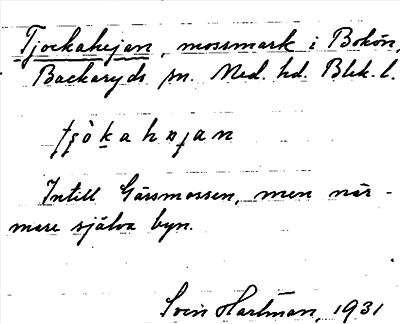 Tjockahejan, mossmark i Bokön,
Backaryds sn. Med. hd. Blek. l.
Intill Gärsmossen, men när-
mare själva byn.
Sven Hartman, 1931